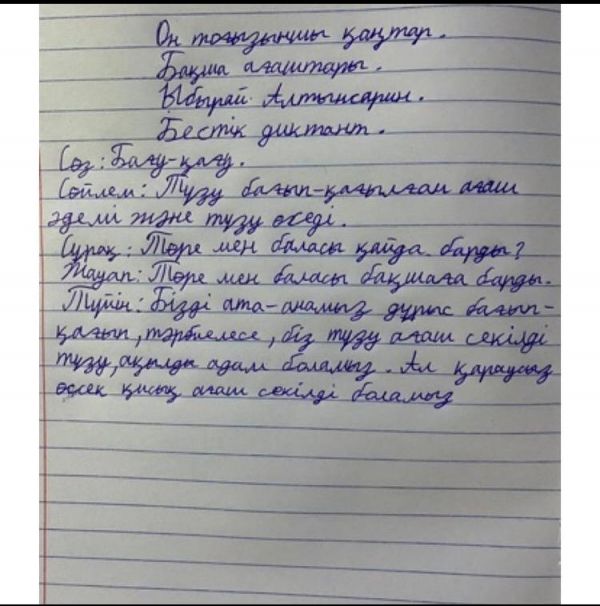 Он тоғызыншы қаңтар.
Бақша ағаштары.
Ыбырай Алтынсарин.
Бестік диктант.
Сөз: Бағу-қағу.
Сөйлем: Түзу бағып-қағылған ағаш
әдемі және түзу өседі.
Сұрақ: Төре мен баласы қайда барды?
Жауап: Төре мен баласы бақшаға барды.
Түйін: Бізді ата-анамыз дұрыс бағып-
қағып, тәрбиелесе, біз түзу ағаш секілді
түзу, ақылды адам боламыз. Ал қараусыз
өссек қисық ағаш секілді боламыз